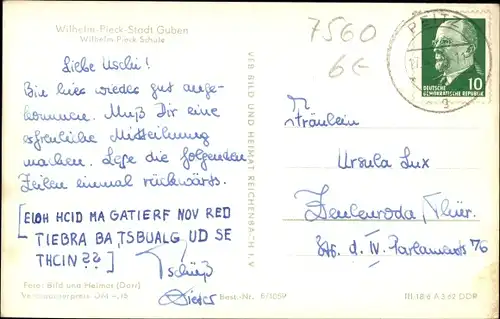 Wilhelm-Pieck-Stadt Guben
Wilhelm Pieck Schule
7560
6€
PEITZ
10
DEUTSCHE
DEMOKRATISCHE REPUBLIK
Liebe Uschi!
Bin hier wieder gut ange-
kommen. Muß Dir eine
erfreuliche Mitteilung
machen. Lese die folgenden
Zeilen einmal rückwärts.
[EIOH HCID MA GATIERF NOV RED
TIEBRA BA TSBUALG UD SE
THCIN ??]
Tschüß
Dieter
VEB BILD UND HEIMAT REICHENBACH I. V.
Fräulein
Ursula Lux
Zeulenroda/Thür.
Str. d. IV. Parlaments 76
Foto: Bild und Heimat (Darr)
Verbraucherpreis DM -,15
Best.-Nr. 6/1059
III 18 6 A 3 62 DDR